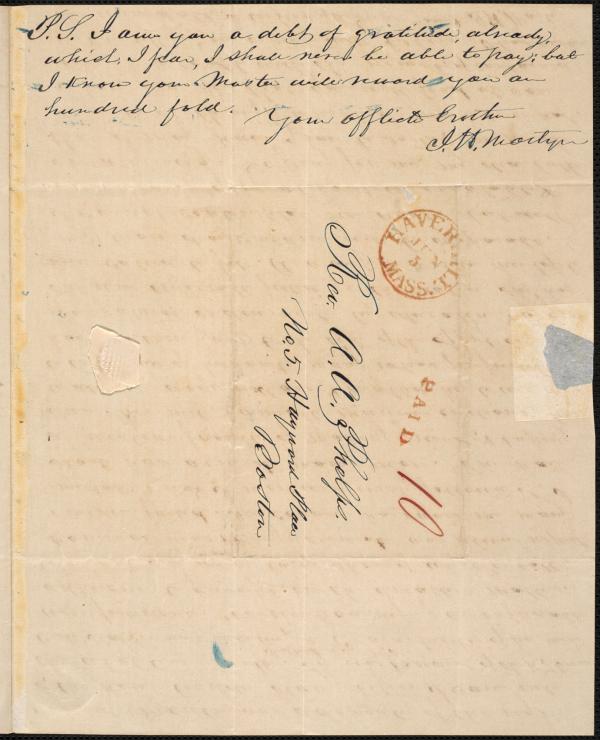 P.S. I owe you a debt of gratitude, already,
which, I fear, I shall never be able to pay; but
I know your Master will reward you an
hundred fold.
Your afflicted brother
J. H. Martyn
HAVER
MASS.
5
PAID 10
Rev. A. A. Phelps.
No. 5. Hayward Place
Boston